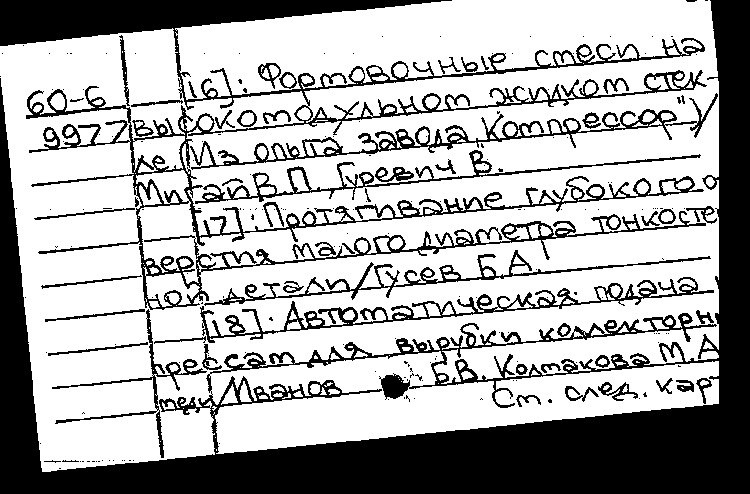 [16]: Формовочные смеси на
60-6
9977 высокомодульном жидком стек-
ле (Из опыта завода „Компрессор")/
Мигай В.П., Гуревич В.
[17]: Протягивание глубокого о
верстия малого диаметра тонкосте
ной детали/Гусев Б.А.
[18]: Автоматическая подача
прессам для вырубки коллекторн
меди/Иванов Б.В. Колмакова М.А
См. след. кар